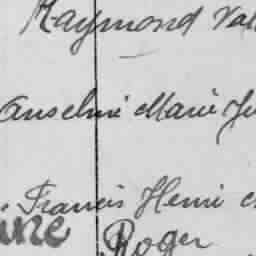 Raymond Val
Anselme Marie Ju
Francis Henri
ine Roger